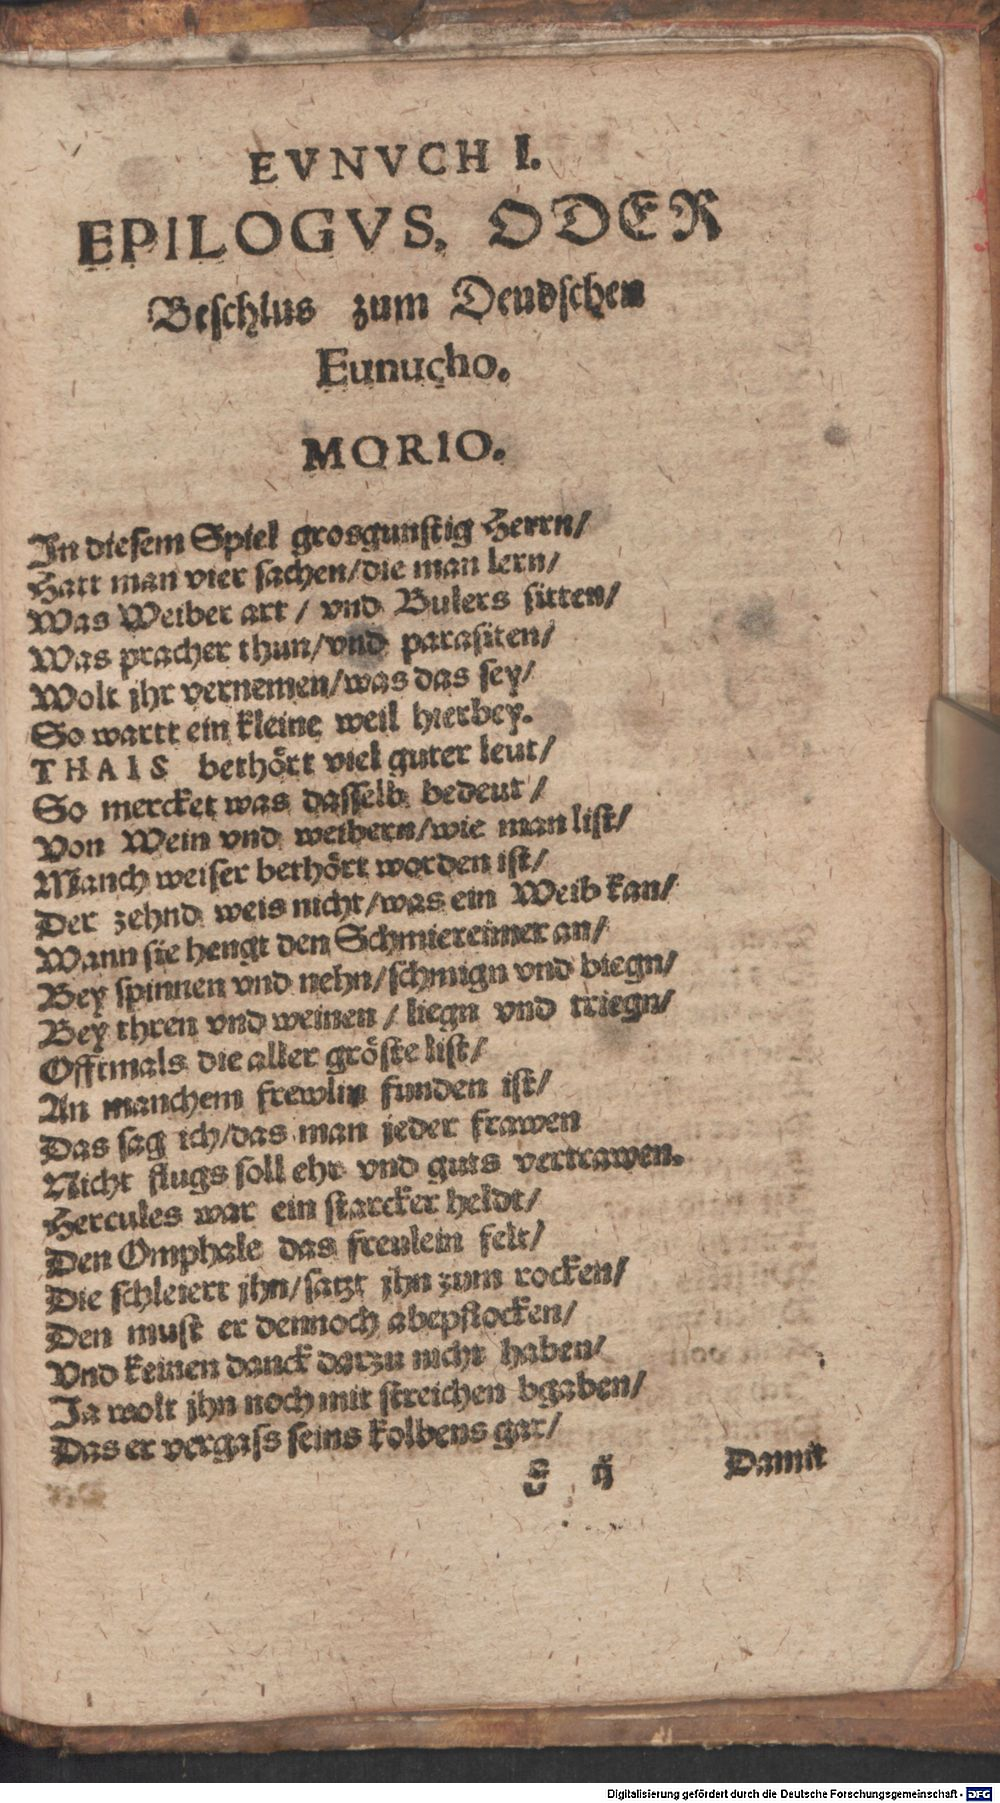 EVNVCH I.
EPILOGVS, ODER
Beschlus zum Deudschen
Eunucho.
MORIO.
In diesem Spiel grosgunstig Herrn/
Hatt man vier sachen/die man lern/
Was Weiber art / vnd Bulers sitten/
Was pracher thun/vnd parasiten/
Wolt jhr vernemen/was das sey/
So wartt ein kleine weil hierbey.
THAIS bethört viel guter leut/
So mercket was dasselb bedeut /
Von Wein vnd weibern/wie man list/
Manch weiser bethört worden ist/
Der zehnd weis nicht/was ein Weib kan/
Wann sie hengt den Schmiereimer an/
Bey spinnen vnd nehn/schmign vnd biegn/
Bey thren vnd weinen / liegn vnd triegn/
Offtmals die aller gröste list/
An manchem frewlin funden ist/
Das sag ich/das man jeder frawen
Nicht flugs soll ehr vnd guts vertrawen.
Hercules war ein starcker heldt/
Den Omphale das freulein felt/
Die schleiert jhn/satzt jhn zum rocken/
Den must er dennoch abepflocken/
Vnd keinen danck darzu nicht haben/
Ja wolt jhn noch mit streichen bgaben/
Das er vergass seins kolbens gar/
G ij Damit
Digitalisierung gefördert durch die Deutsche Forschungsgemeinschaft - DFG